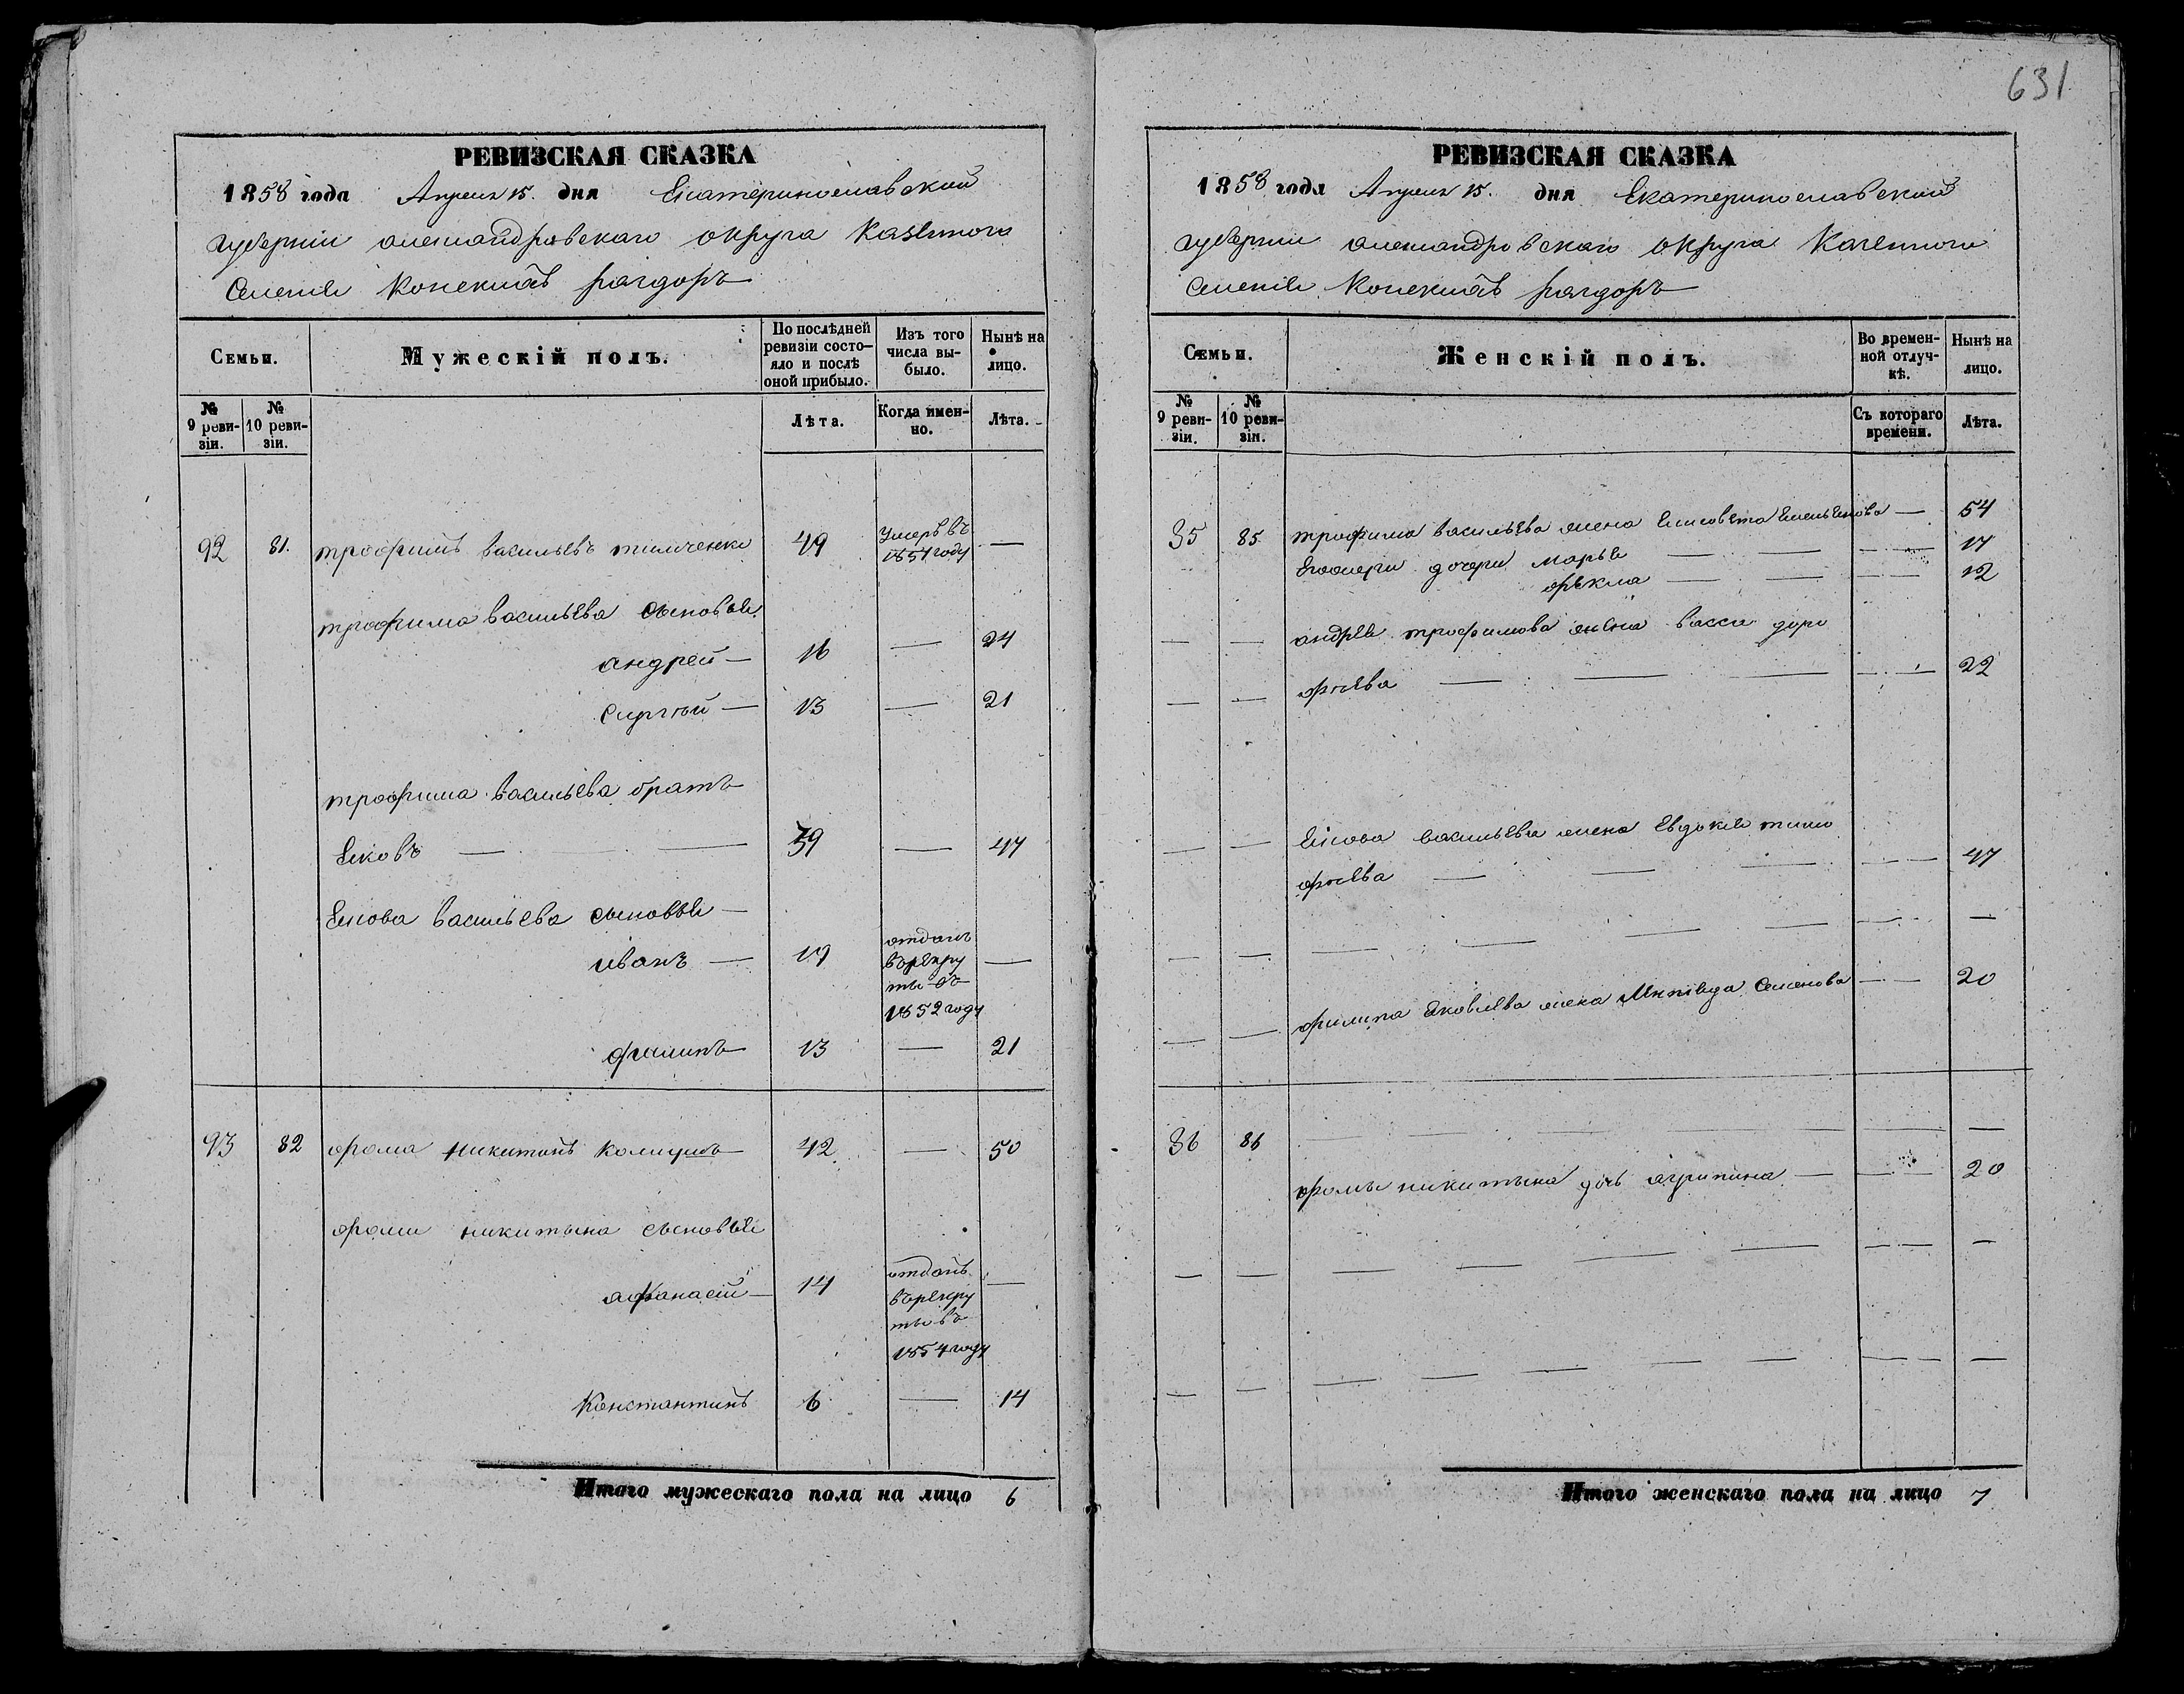 РЕВИЗСКАЯ СКАЗКА
1858 года Апреля 15. дня Екатеринославской
губернии александровскаго округа Казенного
Селения Конскихъ раздоръ
Семьи. Мужескій полъ. По послѣдней ревизіи состояло и послѣ оной прибыло. Изъ того числа выбыло. Нынѣ на лицо.
№ 9 ревизіи. № 10 ревизіи. Лѣта. Когда именно. Лѣта.
92 81. трофимъ васильевъ 49 Умеръ въ 1854 году —
трофима васильева сыновья
андрей — 16 — 24
Сергѣй — 13 — 21
трофима васильева братъ
Яковъ — — 39 — 47
Якова васильева сыновья —
иванъ — 19 отданъ
въ рекру
ты въ —
1852 году
филипъ 13 — 21
93 82 фома никитинъ 42 — 50
фоми никитина сыновья
афанасій — 14 отданъ —
въ рекру
ты въ
1854 году
Константинъ 6 — 14
Итого мужескаго пола на лицо 6
631
РЕВИЗСКАЯ СКАЗКА
1858 года Апреля 15. дня Екатеринославской
губернии александровскаго округа Казенного
Селения Конскихъ раздоръ
Семьи. Женскій полъ. Во временной отлучкѣ. Нынѣ на лицо.
№ 9 ревизіи. № 10 ревизіи. Съ котораго времени. Лѣта.
85 85 трофима васильева жена Елисовета Емельянова — 54
дочери марья — — — 17
фекла — — — 12
— — андрея трофимова жена васса доро
— — фѣева — — — — 22
— — Якова васильева жена Евдокия тимо
фѣева — — — — 47
— — — — — — — —
— — филипа Яковлева жена Семенова — 20
86 86 — — — — — — —
фомы никитина дочь агрипина — — 20
— — — — — — — —
— — — — — — — —
Итого женскаго пола на лицо 7